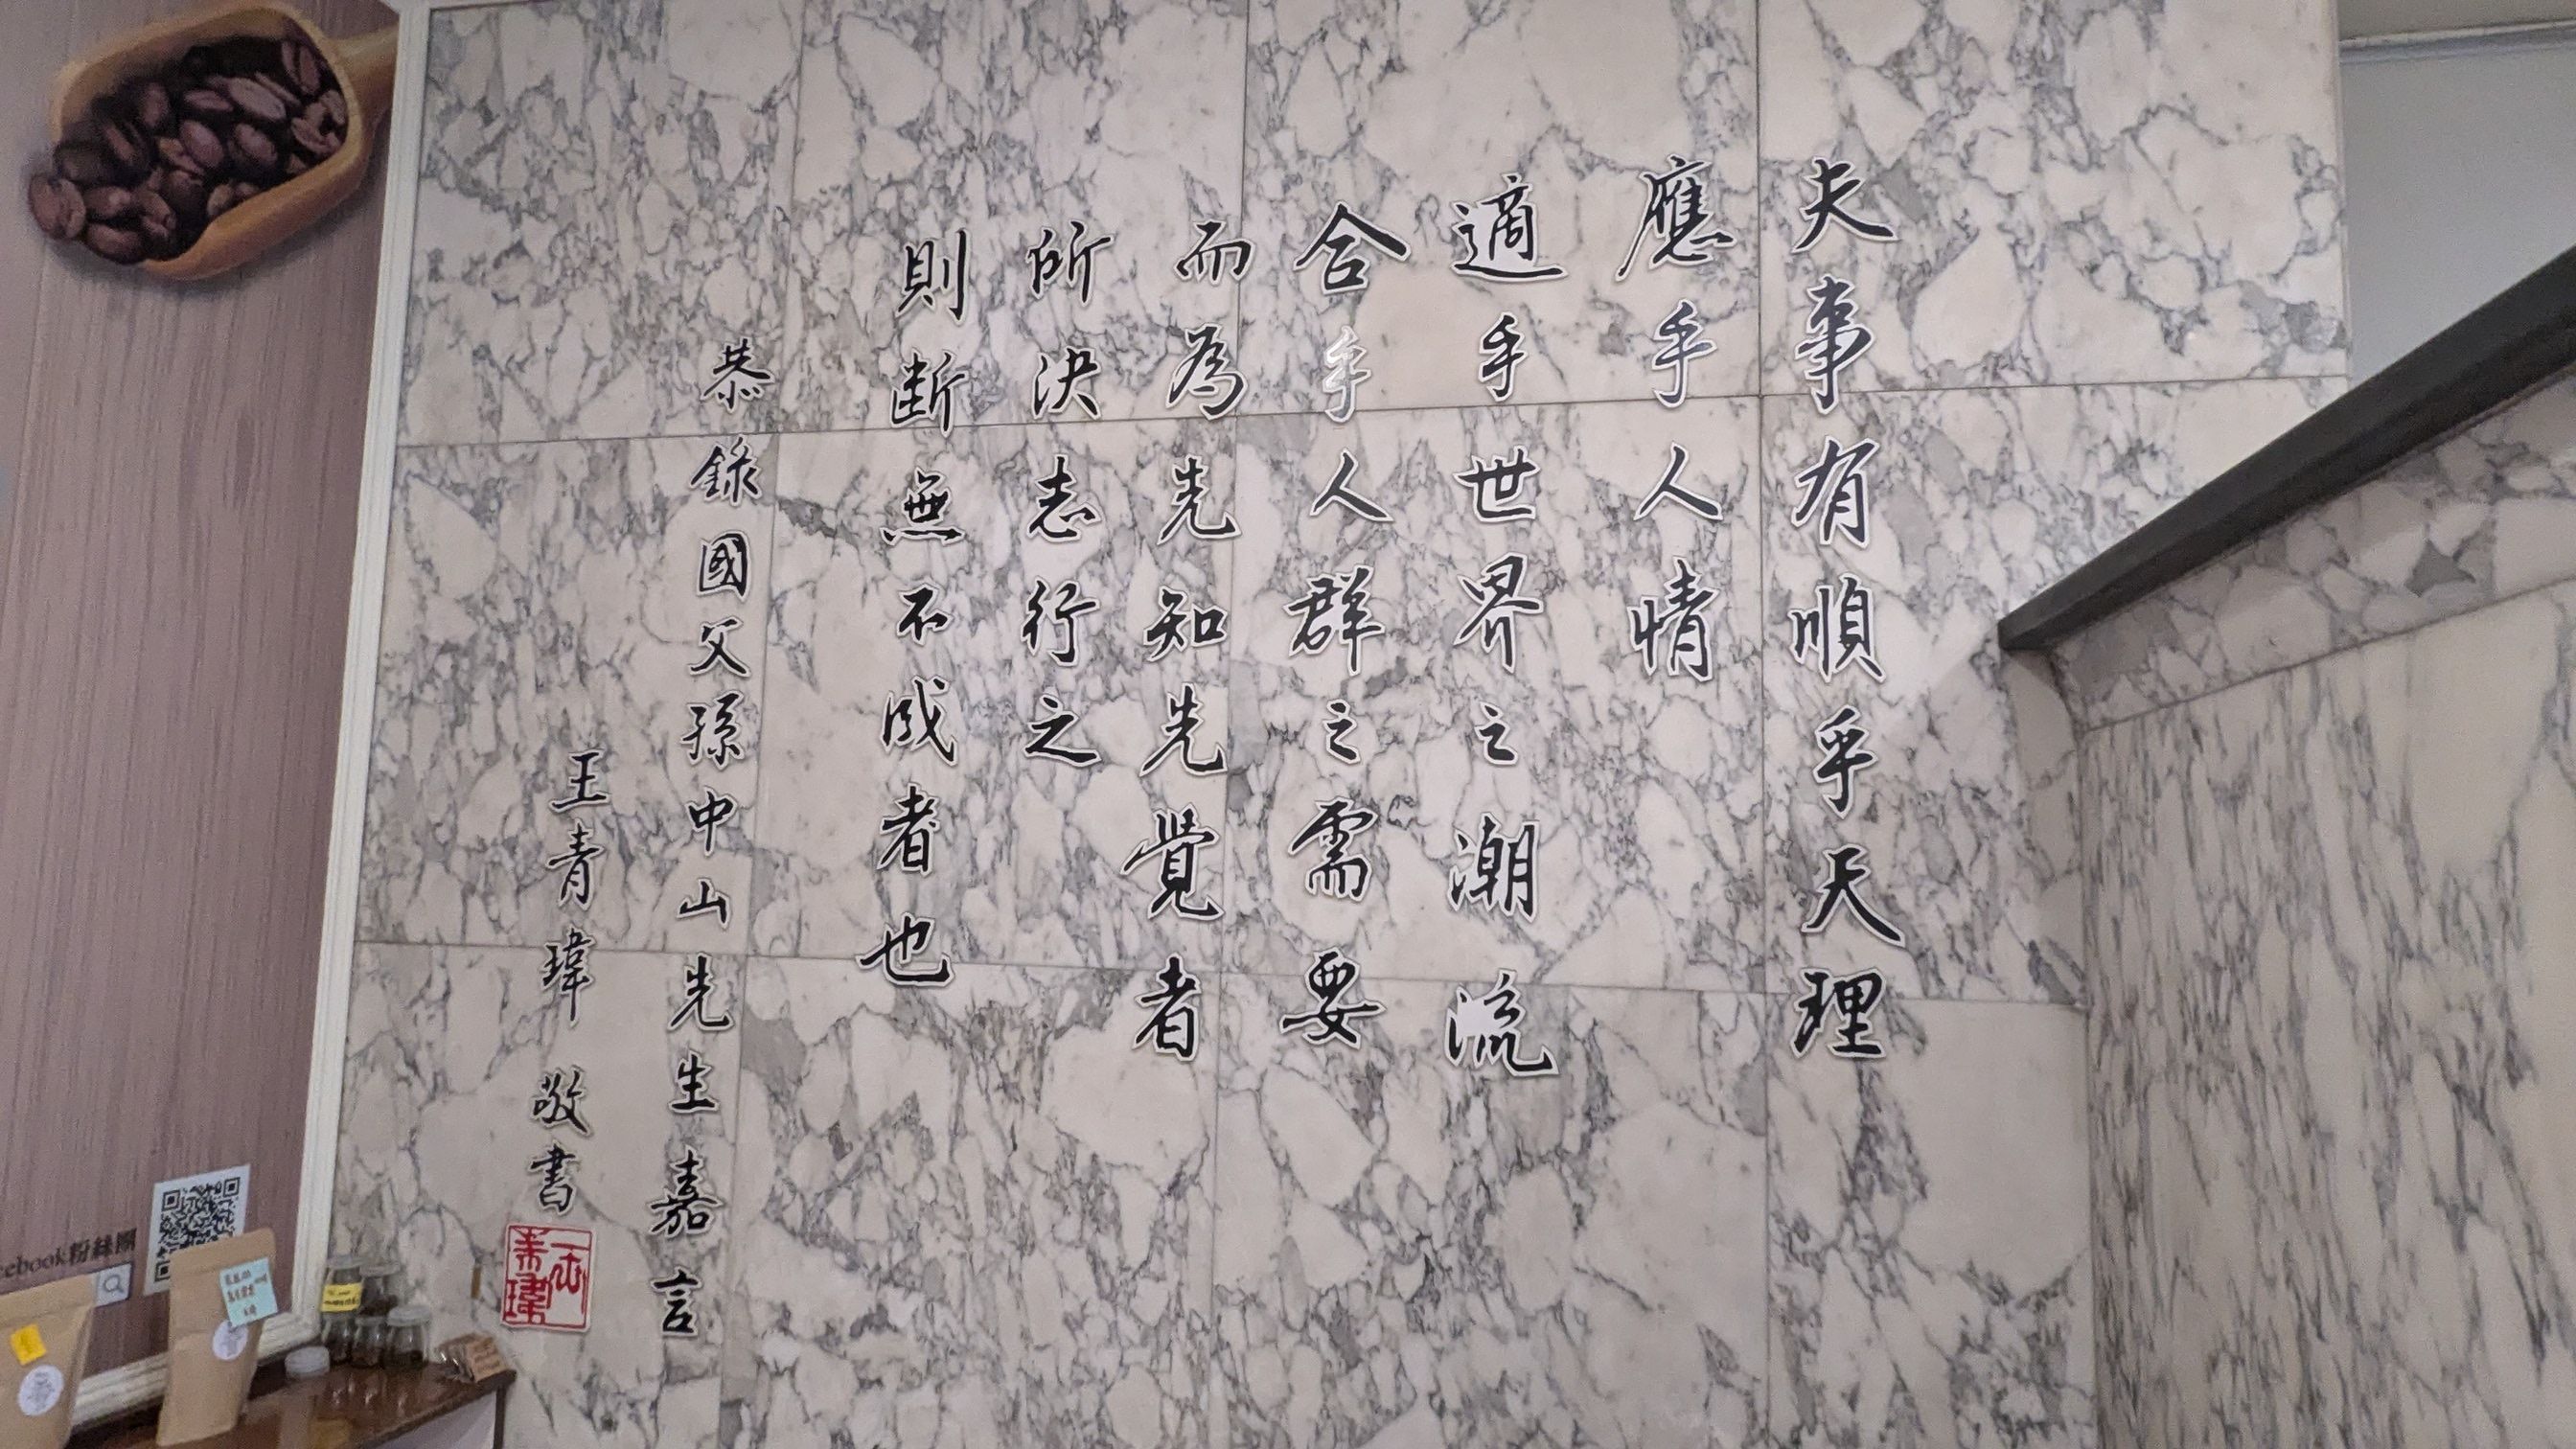 夫事有順乎天理
應乎人情
適乎世界之潮流
合乎人群之需要
而為先知先覺者
所決志行之
則斷無不成者也
恭錄國父孫中山先生嘉言
王青瑋 敬書
cebook粉絲團